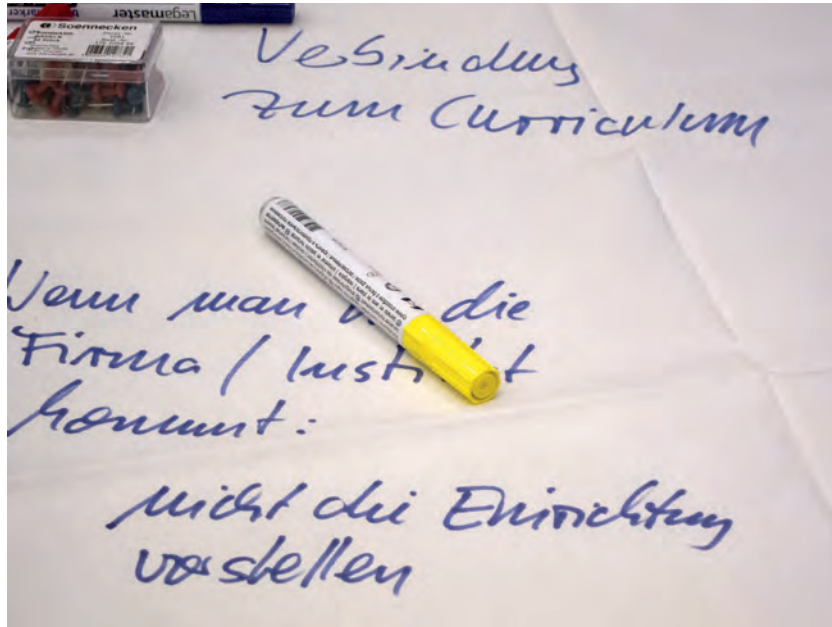 Legamaster
Soennecken
Verbindung
zum Curriculum
Wenn man die
Firma / Institut
kommt:
nicht die Einrichtung
vorstellen